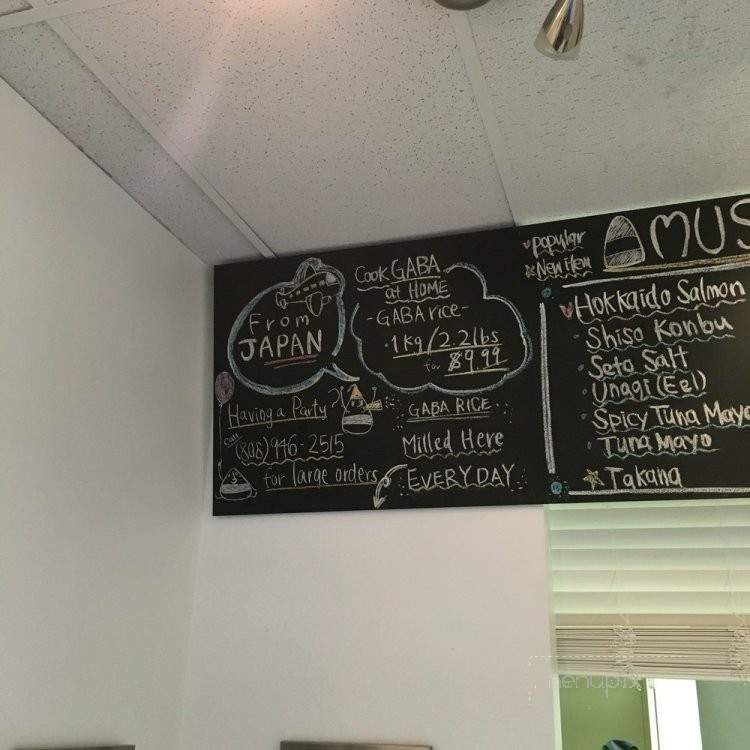 From
JAPAN
Having a Party?
Call
(808) 946-2515
for large orders
Cook GABA
at HOME
- GABA rice -
· 1kg / 2.2lbs
for $9.99
GABA RICE
Milled Here
EVERYDAY
popular
New item
MUS
Hokkaido Salmon
· Shiso Konbu
· Seto Salt
· Unagi (Eel)
· Spicy Tuna Mayo
· Tuna Mayo
Takana
menupix